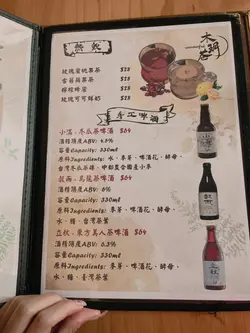 木門客
熱飲
玫瑰蜜桃果茶 $28
雪菊蘋果茶 $28
檸檬蜂蜜 $28
玫瑰可可鮮奶 $28
手工啤酒
小滿．冬瓜茶啤酒 $64
酒精度ABV: 6.8%
容量Capacity: 330ml
原料Ingredients: 水、麥芽、啤酒花、酵母、
台灣冬瓜磚
穀雨．烏龍茶啤酒 $64
酒精度ABV: 4.5%
容量Capacity: 330ml
原料Ingredients: 麥芽、啤酒花、酵母、
水、糖、台灣茶葉
立秋．東方美人茶啤酒 $64
酒精度ABV: 6.3%
容量Capacity: 330ml
原料Ingredients: 麥芽、啤酒花、酵母、
水、糖、臺灣茶葉